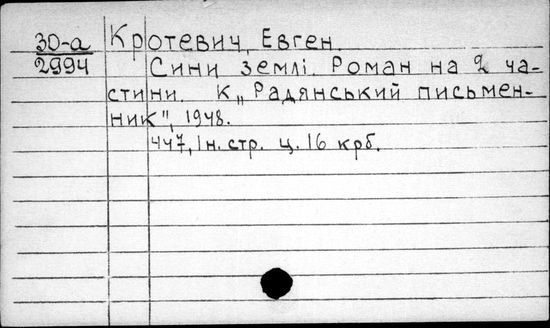 30-а Кротевич, Евген.
2994 Сини землі. Роман на 2 ча-
стини. К „Радянський письмен-
ник", 1948.
447, 1 н. стр. ц. 16 крб.